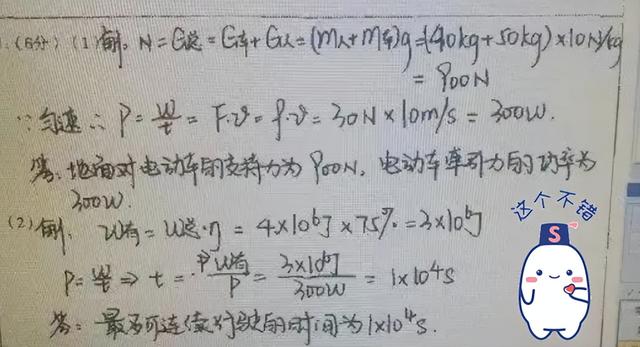 1.(6分)(1)解。N=G总=G车+G人=(m人+m车)g=(40kg+50kg)×10N/kg
=900N
∵匀速∴P=W/t=F·v=f·v=30N×10m/s=300W.
答:地面对电动车的支持力为900N,电动车牵引力的功率为
300W.
(2)解. W有=W总·η=4×10⁶J×75%=3×10⁶J
P=W/t⇒t=W有/P=3×10⁶J/300W=1×10⁴s
答:最多可连续行驶的时间为1×10⁴s.
这个不错
S